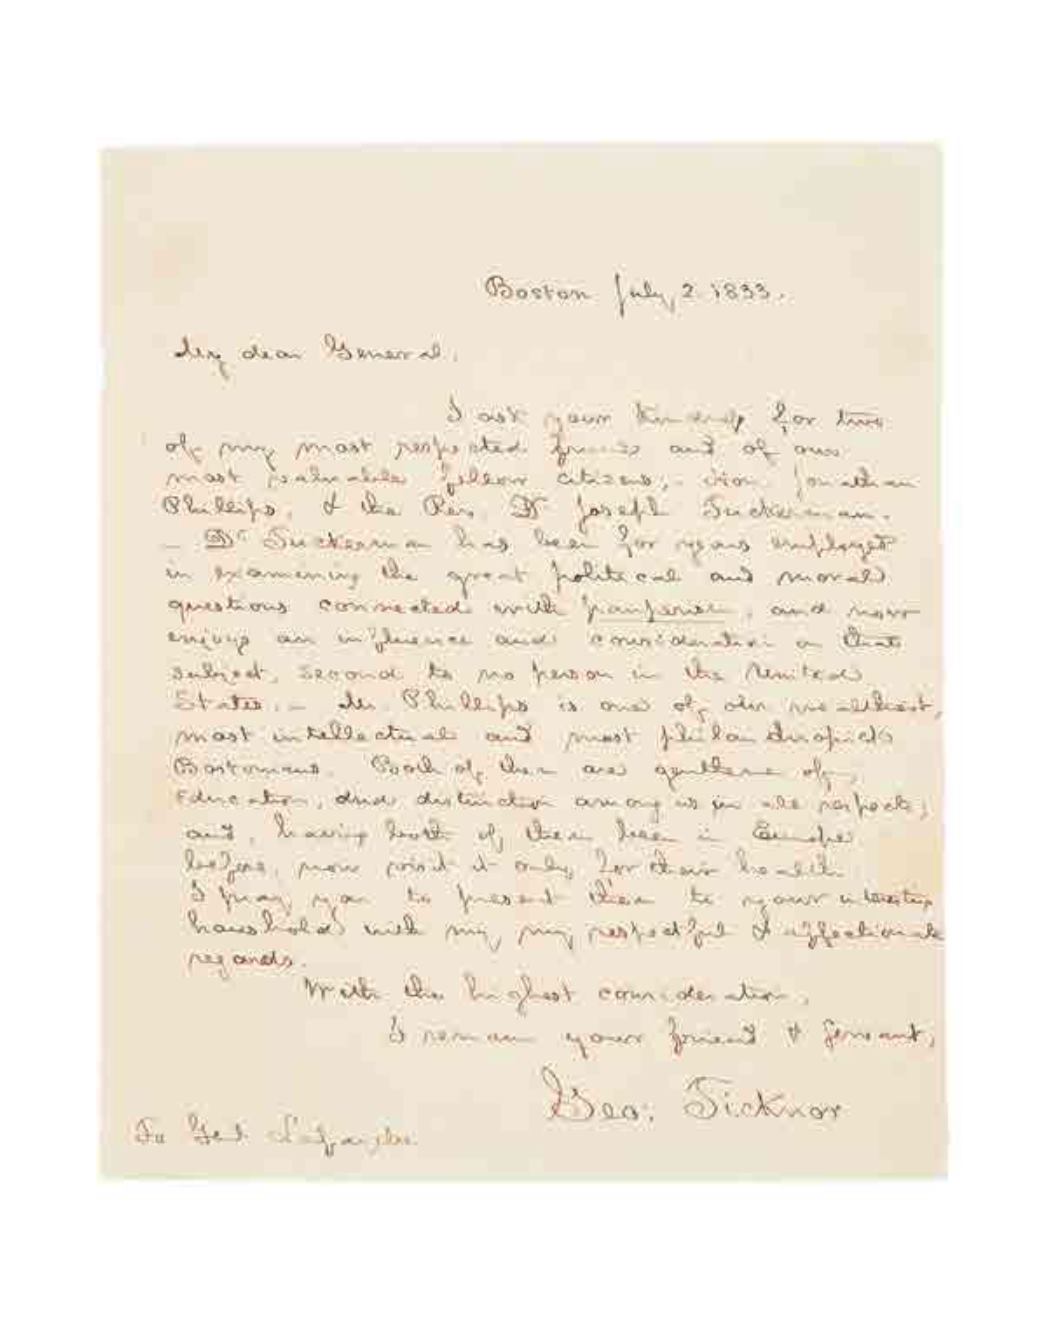 Boston July 2. 1833.
My dear General,
I ask your kindness for two
of my most respected friends and of our
most valuable fellow citizens, - Hon. Jonathan
Phillips, & the Rev. Dr Joseph Tuckerman.
- Dr Tuckerman has been for years employed
in examining the great political and moral
questions connected with pauperism, and now
enjoys an influence and consideration on that
subject, second to no person in the United
States. - Mr. Phillips is one of our wealthiest,
most intellectual and most philanthropick
Bostonians. Both of them are gentlemen of
Education, and distinction among us in all respects;
and, having both of them been in Europe
before, now visit it only for their health.
I pray you to present them to your interesting
household with my, my respectful & affectionate
regards.
With the highest consideration,
I remain your friend & servant,
Geo: Ticknor
To Genl. Lafayette.